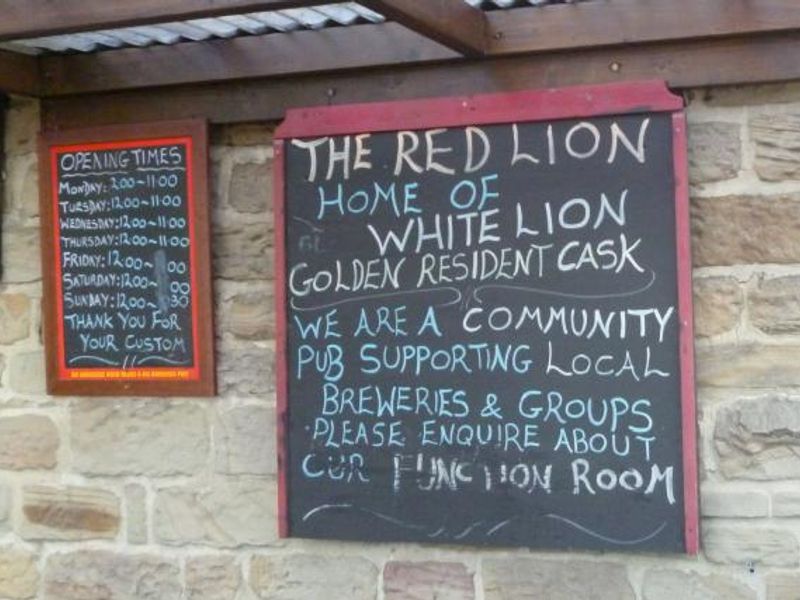 OPENING TIMES
MONDAY: 2.00~11.00
TUESDAY: 12.00~11.00
WEDNESDAY: 12.00~11.00
THURSDAY: 12.00~11.00
FRIDAY: 12.00~ 00
SATURDAY: 12.00~ 00
SUNDAY: 12.00~ 30
THANK YOU FOR
YOUR CUSTOM
THE RED LION
HOME OF
WHITE LION
GOLDEN RESIDENT CASK
WE ARE A COMMUNITY
PUB SUPPORTING LOCAL
BREWERIES & GROUPS
PLEASE ENQUIRE ABOUT
OUR FUNCTION ROOM